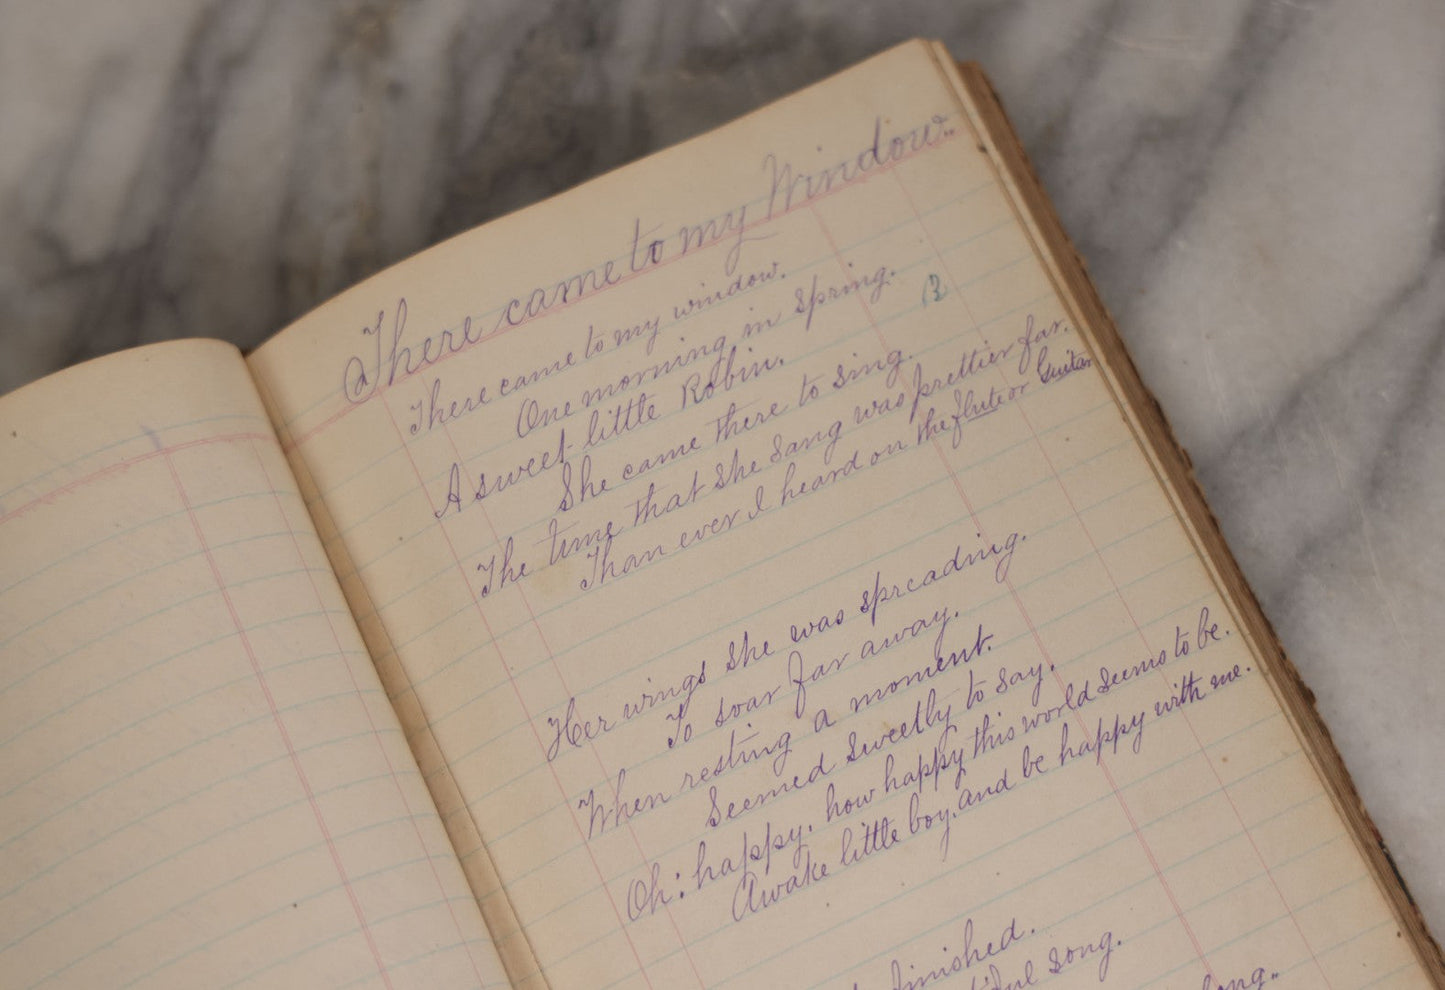 There came to my Window.
There came to my window.
One morning in spring.
A sweet little Robin.
She came there to sing.
The time that she sang was prettier far.
Than ever I heard on the flute or Guitar
Her wings she was spreading.
To soar far away.
When resting a moment.
Seemed sweetly to say.
Oh: happy. how happy this world seems to be.
Awake little boy. and be happy with me.
finished.
song.